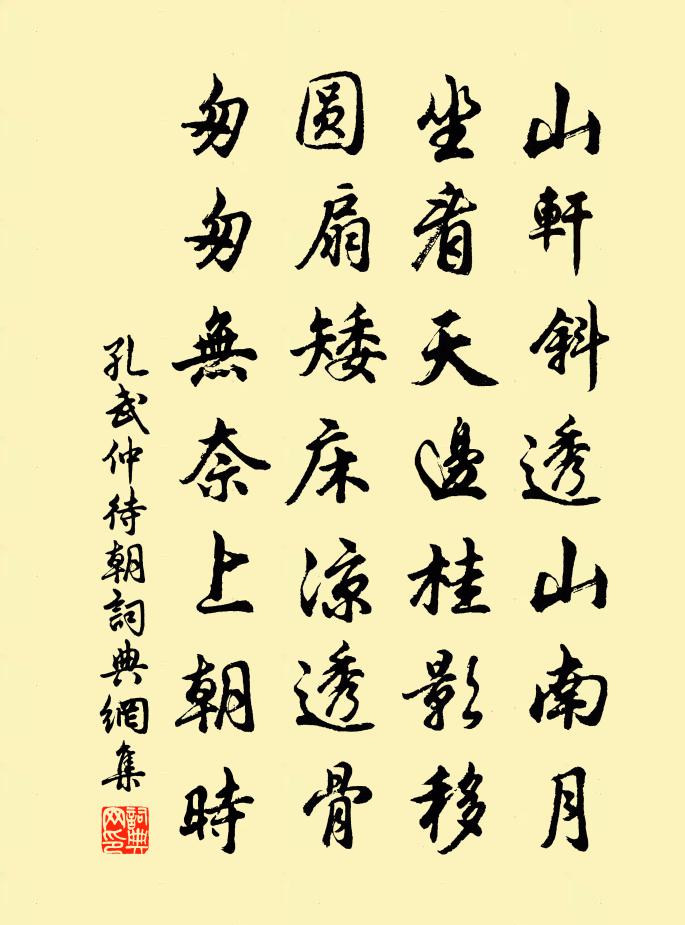 山軒斜透山南月
坐看天邊桂影移
圆扇矮床凉透骨
匆匆無奈上朝時
孔武仲待朝詞典網集
詞典网印